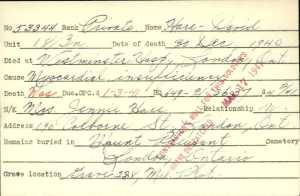 No 53344 Rank Private Name Hare - David
Unit 18 Bn Date of death 30 Dec. 1940
Died at Westminster Hosp, London, Ont
Cause Myocardial insufficiency
Death Was Due, GPC. 1-3-41 HQ 649-
N/k Mrs. Jennie Hare Relationship W.
Address 190 Colborne St. London, Ont
Remains buried in Mount Pleasant Cemetery
London Ontario
Location Grave 388, Mil. Plot.